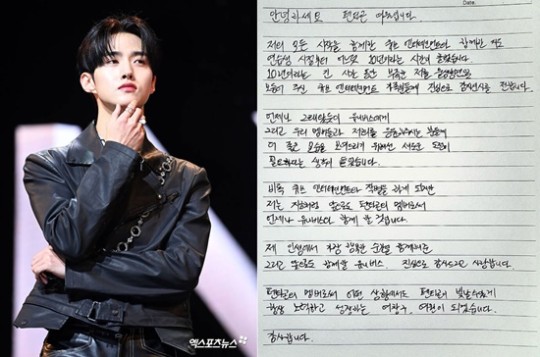 Date.
안녕하세요 펜타곤 여원입니다.
저의 모든 시작을 함께한 큐브 엔터테인먼트와 함께한 지도
연습생 시절부터 어느덧 10년이라는 시간이 흘렀습니다
10년이라는 긴 시간 동안 부족한 저를
보듬어 주신 큐브 엔터테인먼트 가족분들께 진심으로 감사인사를 전합니다.
언제나 그래왔듯이 유니버스에게
그리고 우리 멤버들과 저희를 응원해주시는 분들께
더 좋은 모습을 보여드리기 위해선 새로운 도전이
필요하다는 생각이 들었습니다.
비록 큐브 엔터테인먼트와 작별을 하게 되지만
저는 지금처럼 앞으로도 펜타곤의 멤버로서
언제나 유니버스와 함께 할 것입니다.
제 인생에서 가장 행복한 순간을 함께해준
그리고 앞으로도 함께할 유니버스. 진심으로 감사드리고 사랑합니다.
펜타곤의 멤버로서 어떤 상황에서도 펜타곤이 빛날 수 있게
항상 노력하고 성장하는 여창구, 여원이 되겠습니다.
감사합니다.
엑스포츠뉴스